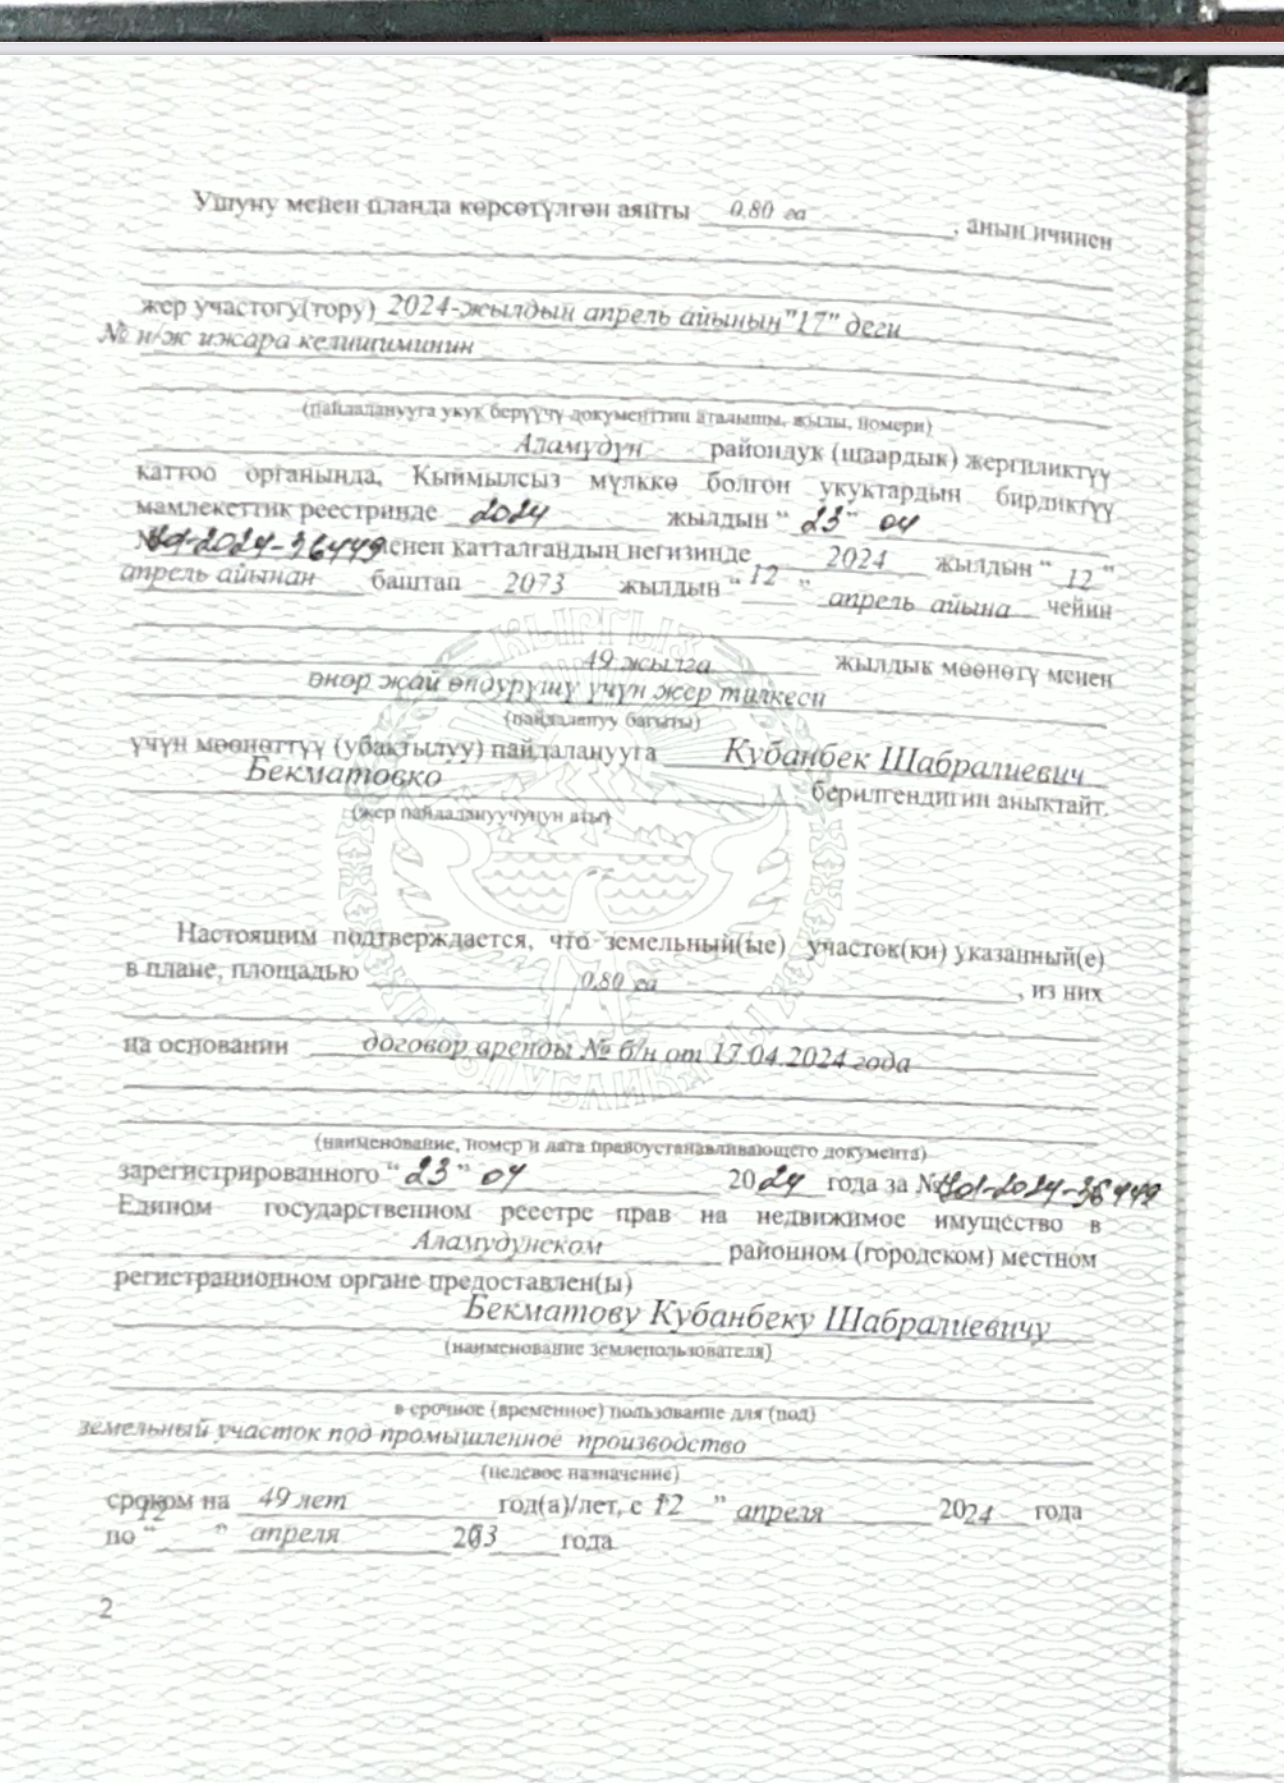 Ушуну менен планда көрсөтүлгөн аянты 0.80 га , анын ичинен
жер участогу(тору) 2024-жылдын апрель айынын "17" деги
№ н/ж ижара келишиминин
(пайдаланууга укук берүүчү документтин аталышы, жылы, номери)
Аламүдүн райондук (шаардык) жергиликтүү
каттоо органында, Кыймылсыз мүлккө болгон укуктардын бирдиктүү
мамлекеттик реестринде 2024 жылдын " 23 " 04
2024-36449 менен катталгандын негизинде 2024 жылдын " 12 "
апрель айынан баштап 2073 жылдын " 12 " апрель айына чейин
49 жылга жылдык мөөнөтү менен
өнөр жай өндүрүшү үчүн жер тилкеси
(пайдалануу багыты)
үчүн мөөнөттүү (убактылуу) пайдаланууга Кубанбек Шабралиевич
Бекматовко берилгендигин аныктайт.
(жер пайдалануучунун аты)
КЫРГЫЗ РЕСПУБЛИКАСЫ
Настоящим подтверждается, что земельный(ые) участок(ки) указанный(е)
в плане, площадью 0,80 га , из них
на основании договор аренды № б/н от 17.04.2024 года
(наименование, номер и дата правоустанавливающего документа)
зарегистрированного " 23 " 04 2024 года за № 2024-36449
Едином государственном реестре прав на недвижимое имущество в
Аламудунском районном (городском) местном
регистрационном органе предоставлен(ы)
Бекматову Кубанбеку Шабралиевичу
(наименование землепользователя)
в срочное (временное) пользование для (под)
земельный участок под промышленное производство
(целевое назначение)
сроком на 49 лет год(а)/лет, с 12 " апреля 2024 года
по " 12 " апреля 2073 года
2